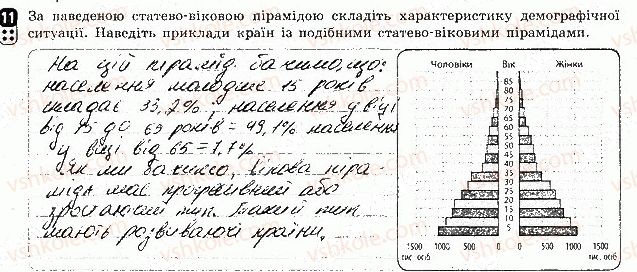 11 За наведеною статево-віковою пірамідою складіть характеристику демографічної
ситуації. Наведіть приклади країн із подібними статево-віковими пірамідами.
На цій піраміді бачимо, що:
населення молодше 15 років
складає 33,2% і населення у віці
від 15 до 69 років = 49,1% населення
у віці від 65 = 1,7%
Як ми бачимо, вікова піра-
міда має прогресивний або
зростаючий тип. Такий тип
мають розвиваючі країни.
Чоловіки Вік Жінки
85
80
75
70
65
60
55
50
45
40
35
30
25
20
15
10
5
1500 1000 500 0 0 500 1000 1500
тис. осіб тис. осіб